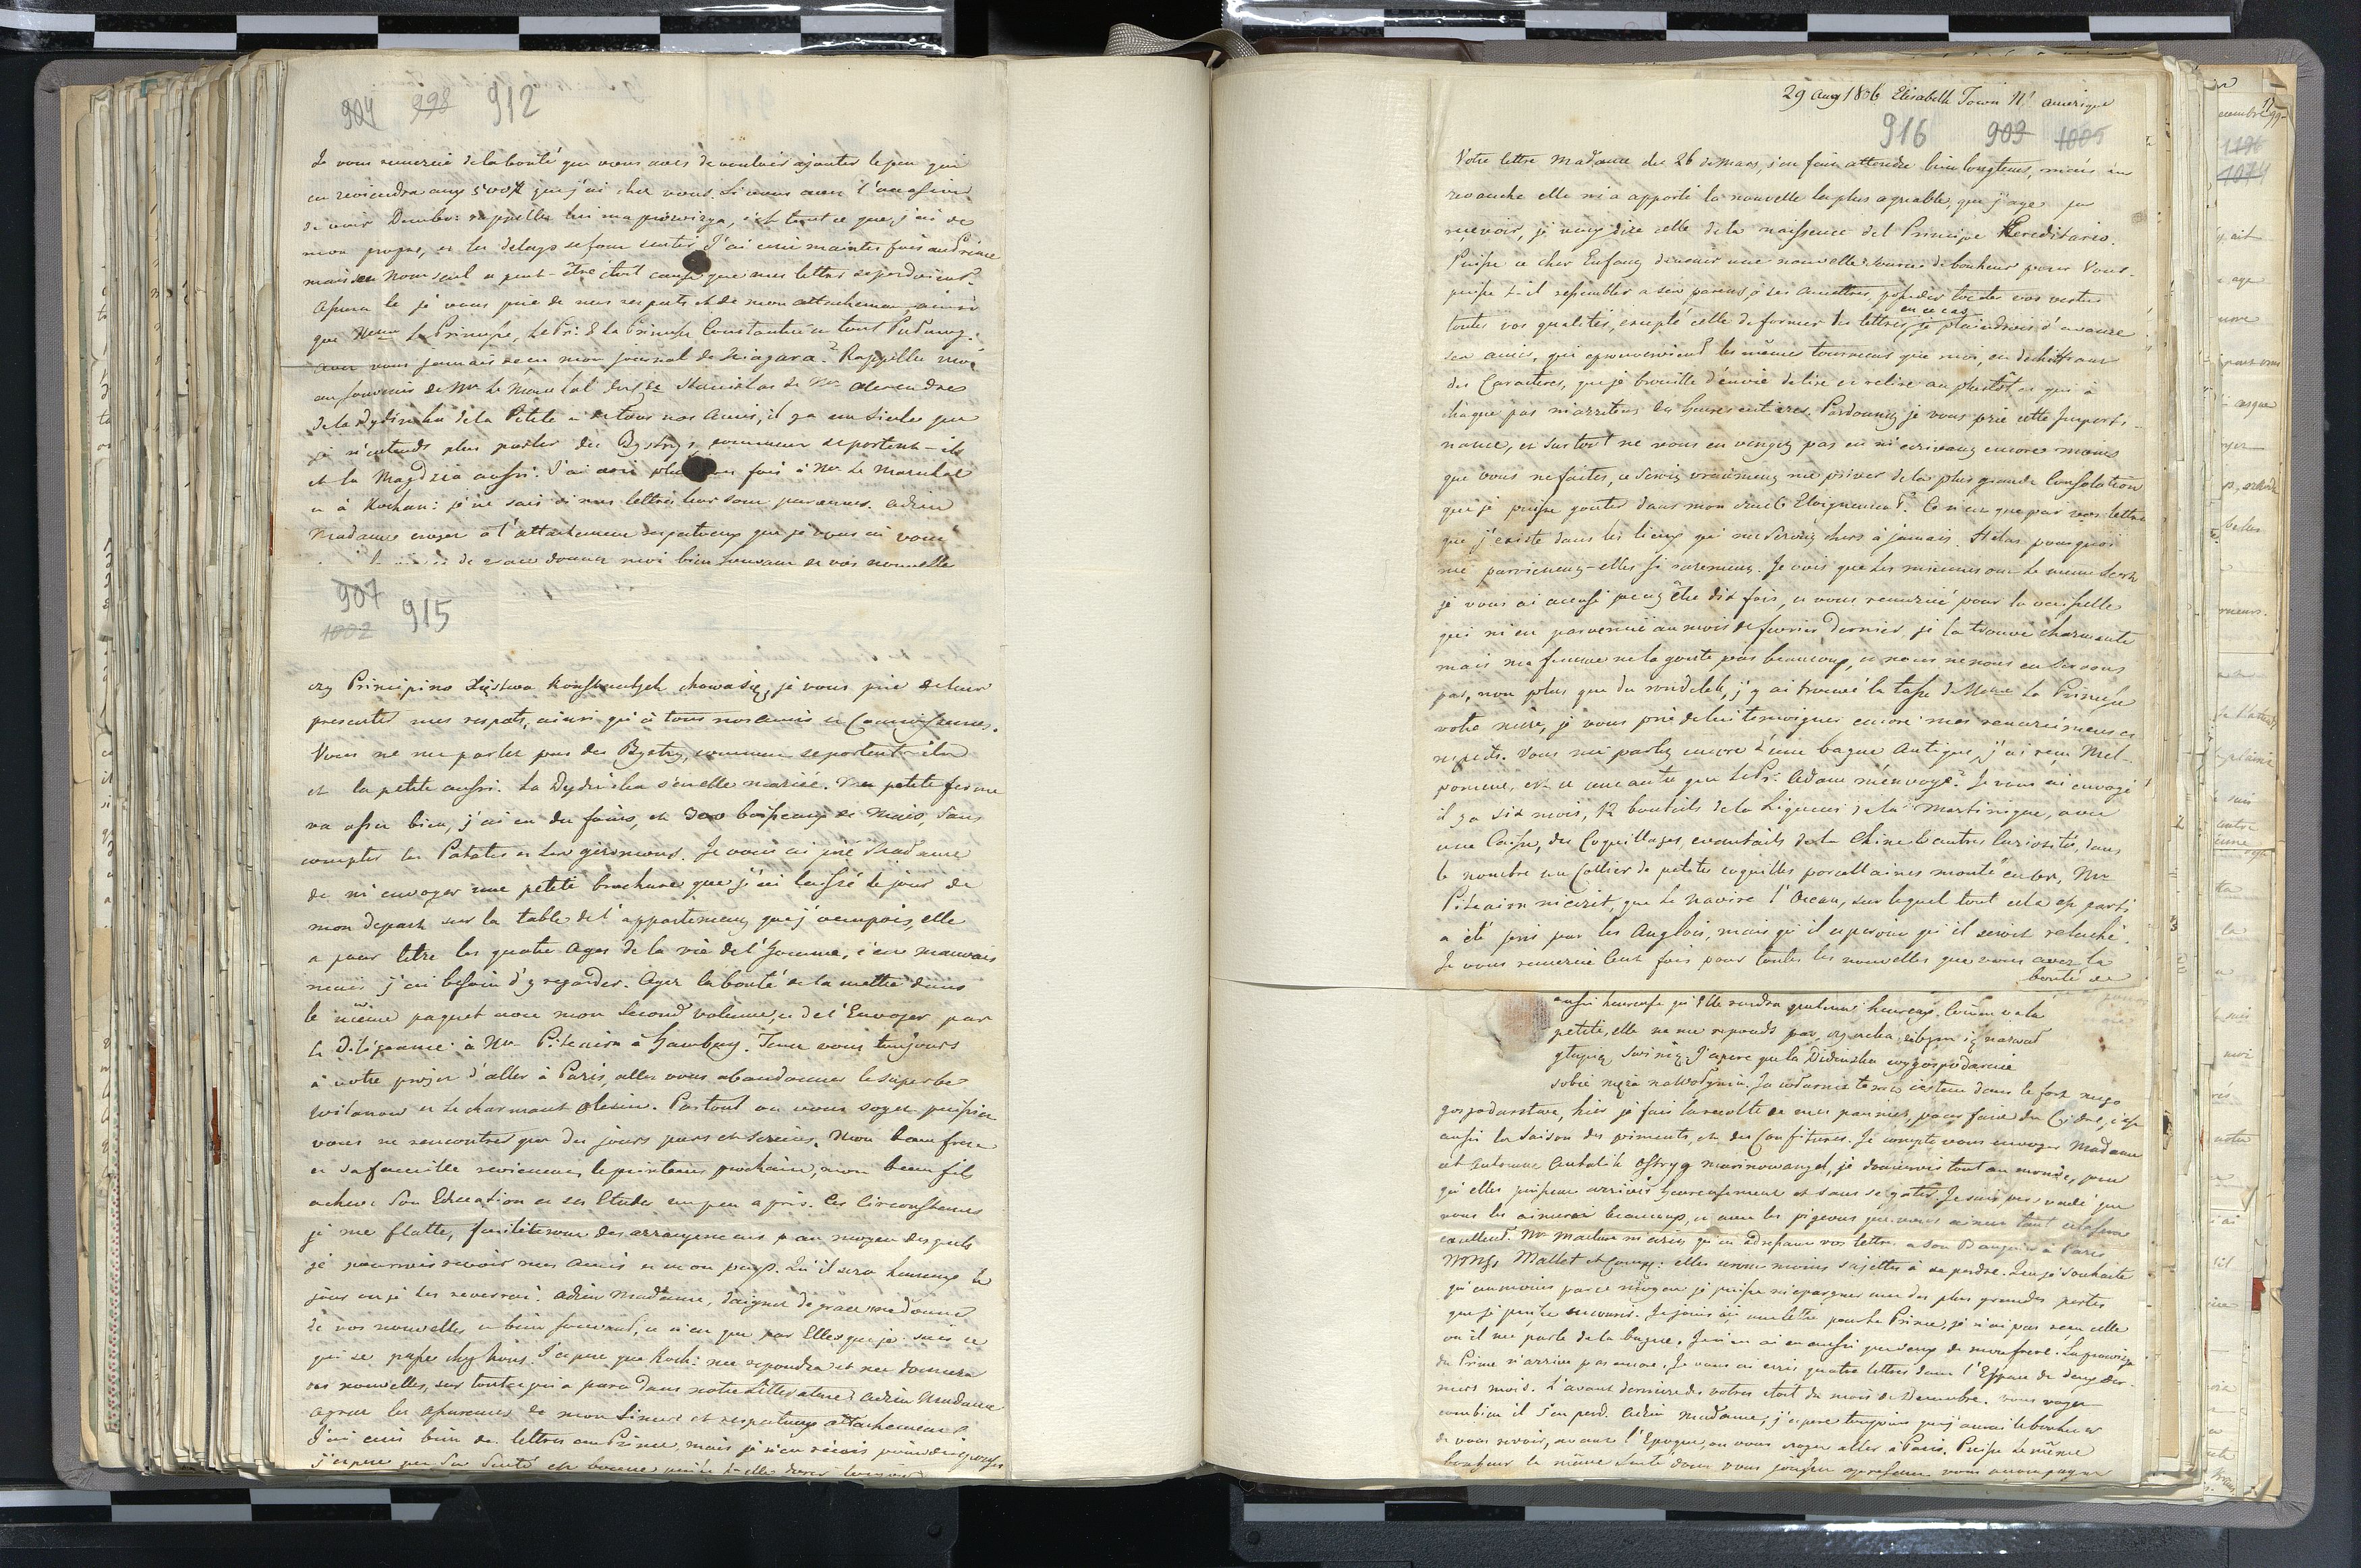 904 998 912
Je vous remercie de la bonté que vous avez de vouloir ajouter le peu qui
en reviendra aux 500# que j'ai chez vous. Si vous avez l'occasion
de voir Dembo: rappellez lui ma prowizya, c'est tout ce que j'ai de
mon propre, et les delays se font sentir. J'ai ecrit maintes fois au Prince
mais son Nom seul a peut-être été cause que mes lettres se perdoient.
Assurez le je vous prie de mes respects et de mon attachement, ainsi
que Mme La Princesse, Le Pri: & La Princesse Constantin et tout Pudawy.
avez vous jamais recu mon journal de Niagara? Rappellez moi
au souvenir de Mr Le Marechal de Stanislas de Mr Alexandre
de la Dydinska de la Petite et de tous nos amis, il y a un siecle que
je n'entends plus parler des Bystrys, comment se portent-ils
et la Magdzia aussi. J'ai ecrit fois à Mr Le Marechal
et à Kochan: je ne sais si mes lettres leur sont parvenues. adieu
Madame croyez à l'attachement respectueux que je vous ai voué
de grace donnez moi bien souvent de vos nouvelles
907 915
1002
czy Principino Xięstwa Konstantych chowa się, je vous prie de leur
presenter mes respects, ainsi qu'à tous nos amis et Connoissances.
Vous ne me parlez pas des Bystry, comment se portent-ils
et la petite aussi. La Dydinska s'est elle mariée. Ma petite ferme
va assez bien, j'ai eu du foin, et 300 boisseaux de Mais, sans
compter les Patates et les giromons. Je vous ai prié Madame
de m'envoyer une petite brochure que j'ai laissé le jour de
mon depart sur la table de l'appartement que j'occupois, elle
a pour titre les quatre Ages de la vie de l'homme, c'est mauvais
mais j'ai besoin d'y regarder. Ayez la bonté de la mettre dans
le même paquet avec mon Second volume, et de l'Envoyer par
la Diligeance à Mr Pitcairn à Hambourg. Tenez vous toujours
à votre projet d'aller à Paris, allez vous abandonner le superbe
Wilanow et le charmant Olesin. Partout ou vous soyez puissiez
vous ne rencontrer que des jours purs et sereins. Mon beau frere
et sa famille reviennent le printems prochain, mon beau fils
acheve son Education et ses Etudes un peu après. Ces Circonstances
je me flatte, faciliteront des arrangemens au moyen des quels
je pourrois revoir mes amis et mon pays. Qu'il sera heureux le
jour ou je les reverrai. adieu Madame, daignez de grace me donner
de vos nouvelles et bien souvent, ce n'est que par Elles que je sais ce
qui se passe chez nous. J'espere que Koch: me repondra et me donnera
des nouvelles, sur tout ce qui a paru dans notre Litterature. Adieu Madame
agreez les assurances de mon Sincere et respectueux attachement.
J'ai ecrit bien des lettres au Prince, mais je n'en recois point de reponses
j'espere que Sa Santé est bonne
29 Aug 1806 Elisabeth Town Nl Amerique
916 903 1005
Votre lettre Madame du 26 de Mars, s'est fait attendre bien longtems, mais en
revanche elle m'a apporté la nouvelle la plus agréable, que j'aye pu
recevoir, je veux dire celle de la naissance del Principe Hereditario.
Puisse ce cher Enfant devenir une nouvelle source de bonheur pour Vous.
puisse t-il ressembler a ses parens, à ses Ancetres, posseder toutes vos vertus
toutes vos qualités, excepté celle de former des lettres, en ce cas je plaindrois d'avance
ses amis, qui eprouveroient les même tourmens que moi, en dechiffrant
des Caracteres, que je brouille d'envie de lire et relire au plustôt et qui à
chaque pas m'arretent des heures entieres. Pardonnez je vous prie cette Imperti-
nance, et surtout ne vous en vengez pas en m'ecrivant encore moins
que vous ne faites, ce seroit vraiment me priver de la plus grande Consolation
que je puisse gouter dans mon cruel Eloignement. Ce n'est que par vos lettres
que j'existe dans les lieux qui me seront chers à jamais. Helas pourquoi
me parviennent-elles si rarement. Je vois que les miennes ont le meme sort
je vous ai accusé peut être dix fois, et vous remercié pour la vaisselle
qui m'est parvenue au mois de fevrier dernier, je la trouve charmante
mais ma femme ne la goute pas beaucoup, et nous ne nous en servons
pas, non plus que du rondelek, j'y ai trouvé la tasse de Mme La Princesse
votre mère, je vous prie de lui temoigner encore mes remercimens et
respects. Vous me parlez encore d'une bague Antique, j'ai reçu Mel-
pomene, est ce une autre que le Pri: Adam m'envoye? Je vous ai envoyé
il y a six mois, 12 bouteils de la Liqueur de la Martinique, avec
une Caisse, des Coquillages, evantails de la Chine & autres Curiosités, dans
le nombre un Collier de petites coquilles porcellaines monté en or, Mr
Pitcairn m'ecrit, que le navire l'Ocean, sur lequel tout cela est parti
a été pris par les Anglois, mais qu'il espere qu'il seroit relaché.
Je vous remercie Cent fois pour toutes les nouvelles que vous avez la
bonté de
aussi heureuse qu'Elle rendra quelqu'un heureux. Comment va la
petite, elle ne me reponds pas,
głupią Swinią. J'espere que la Didinska wygospodarnie
sobie męża na Wołyniu. Ja
gospodarstwa, hier je fais la recolte de mes pommes, pour faire du Cidre, c'est
aussi la saison des piments, et des Confitures. Je compte vous envoyer Madame
cet automne ostryg marinowanych, je donnerois tout au monde, pour
qu'elles puissent arriver heureusement et sans se gater. Je suis persuadé que
vous les aimerez beaucoup, et avec les pigeons que vous aimez tant cela sera
excellent. Mr Maclure m'ecrit qu'en adressant vos lettres a son Banquier à Paris
MMrs Mallet et Comp: elles seront moins sujettes à se perdre. Que je souhaite
qu'au moins par ce moyen je puisse m'epargner une des plus grandes pertes
que je puisse encourir. Je joins ici une lettre pour le Prince, je n'ai pas reçu celle
ou il me parle de la bague. Je n'en ai eu aussi que deux de mon frere. La prowizya
du Prince n'arrive pas encore. Je vous ai ecris quatre lettres dans l'Espace de deux der-
niers mois. L'avant derniere des votres etoit du mois de Decembre. vous voyez
combien il s'en perd. Adieu Madame, j'espere toujours que j'aurai le bonheur
de vous revoir, avant l'Epoque, ou vous voyez aller à Paris. Puisse le même
bonheur la même Santé dont vous jouissez a present vous accompagner